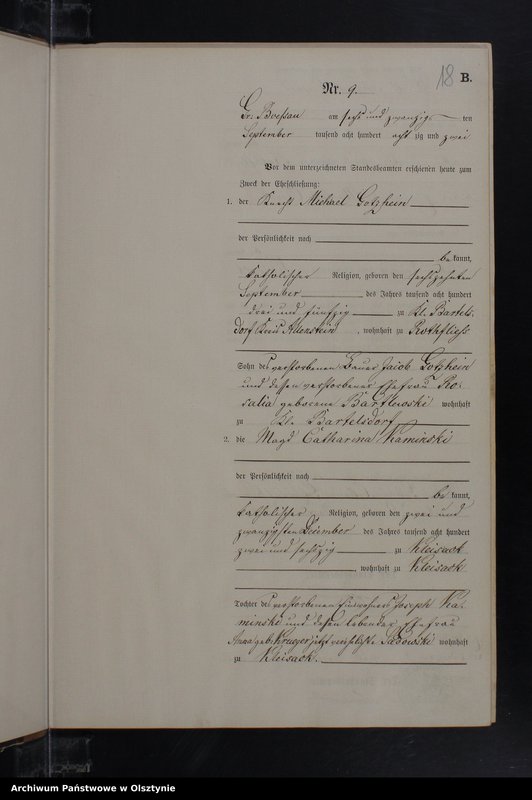 18 B.
Nr. 9.
Gr. Boessau am sechs und zwanzig ten
September tausend acht hundert acht zig und zwei
Vor dem unterzeichneten Standesbeamten erschienen heute zum
Zweck der Eheschließung:
1. der Knecht Michael Gotzhein
der Persönlichkeit nach
be kannt,
katholischer Religion, geboren den sechszehnten
September des Jahres tausend acht hundert
drei und fünfzig zu Kl. Bartels-
dorf Kreis Allenstein, wohnhaft zu Rothfließ
Sohn des verstorbenen Bauer Jacob Gotzhein
und dessen verstorbener Ehefrau Ro-
salia geborene Bartlewski wohnhaft
zu Kl. Bartelsdorf
2. die Magd Catharina Kaminski
der Persönlichkeit nach
be kannt,
katholischer Religion, geboren den zwei und
zwanzigsten December des Jahres tausend acht hundert
zwei und sechszig zu Kleisack
, wohnhaft zu Kleisack
Tochter des verstorbenen Einwohners Joseph Ka-
minski und dessen lebender Ehefrau
Anna geb. Krueger jetzt verehelichte Sadowski wohnhaft
zu Kleisack.
Archiwum Państwowe w Olsztynie